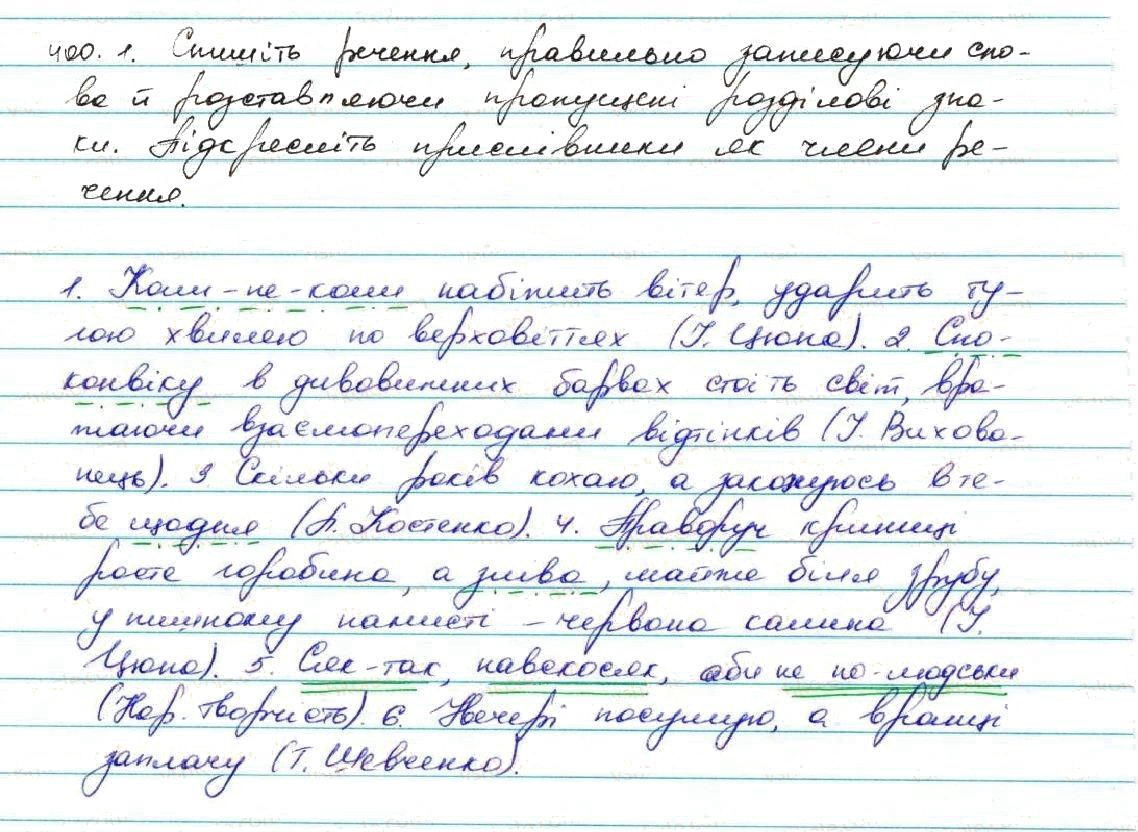 400. 1. Спишіть речення, правильно записуючи сло-
ва й розставляючи пропущені розділові зна-
ки. Підкресліть прислівники як члени ре-
чення.
1. Коли-не-коли набіжить вітер, ударить ту-
гою хвилею по верховіттях (І. Цюпа). 2. Спо-
конвіку в дивовижних барвах стоїть світ, вра-
жаючи взаємопереходами відтінків (І. Вихова-
нець). 3 Скільки років кохаю, а закохуюсь в те-
бе щодня (Л. Костенко). 4. Праворуч криниці
росте горобина, а зліва, майже біля зрубу,
у пишному намисті – червона калина (І.
Цюпа). 5. Сяк-так, навскосяк, аби не по-людськи
(Нар. творчість). 6. Ввечері посумую, а вранці
заплачу (Т. Шевченко).